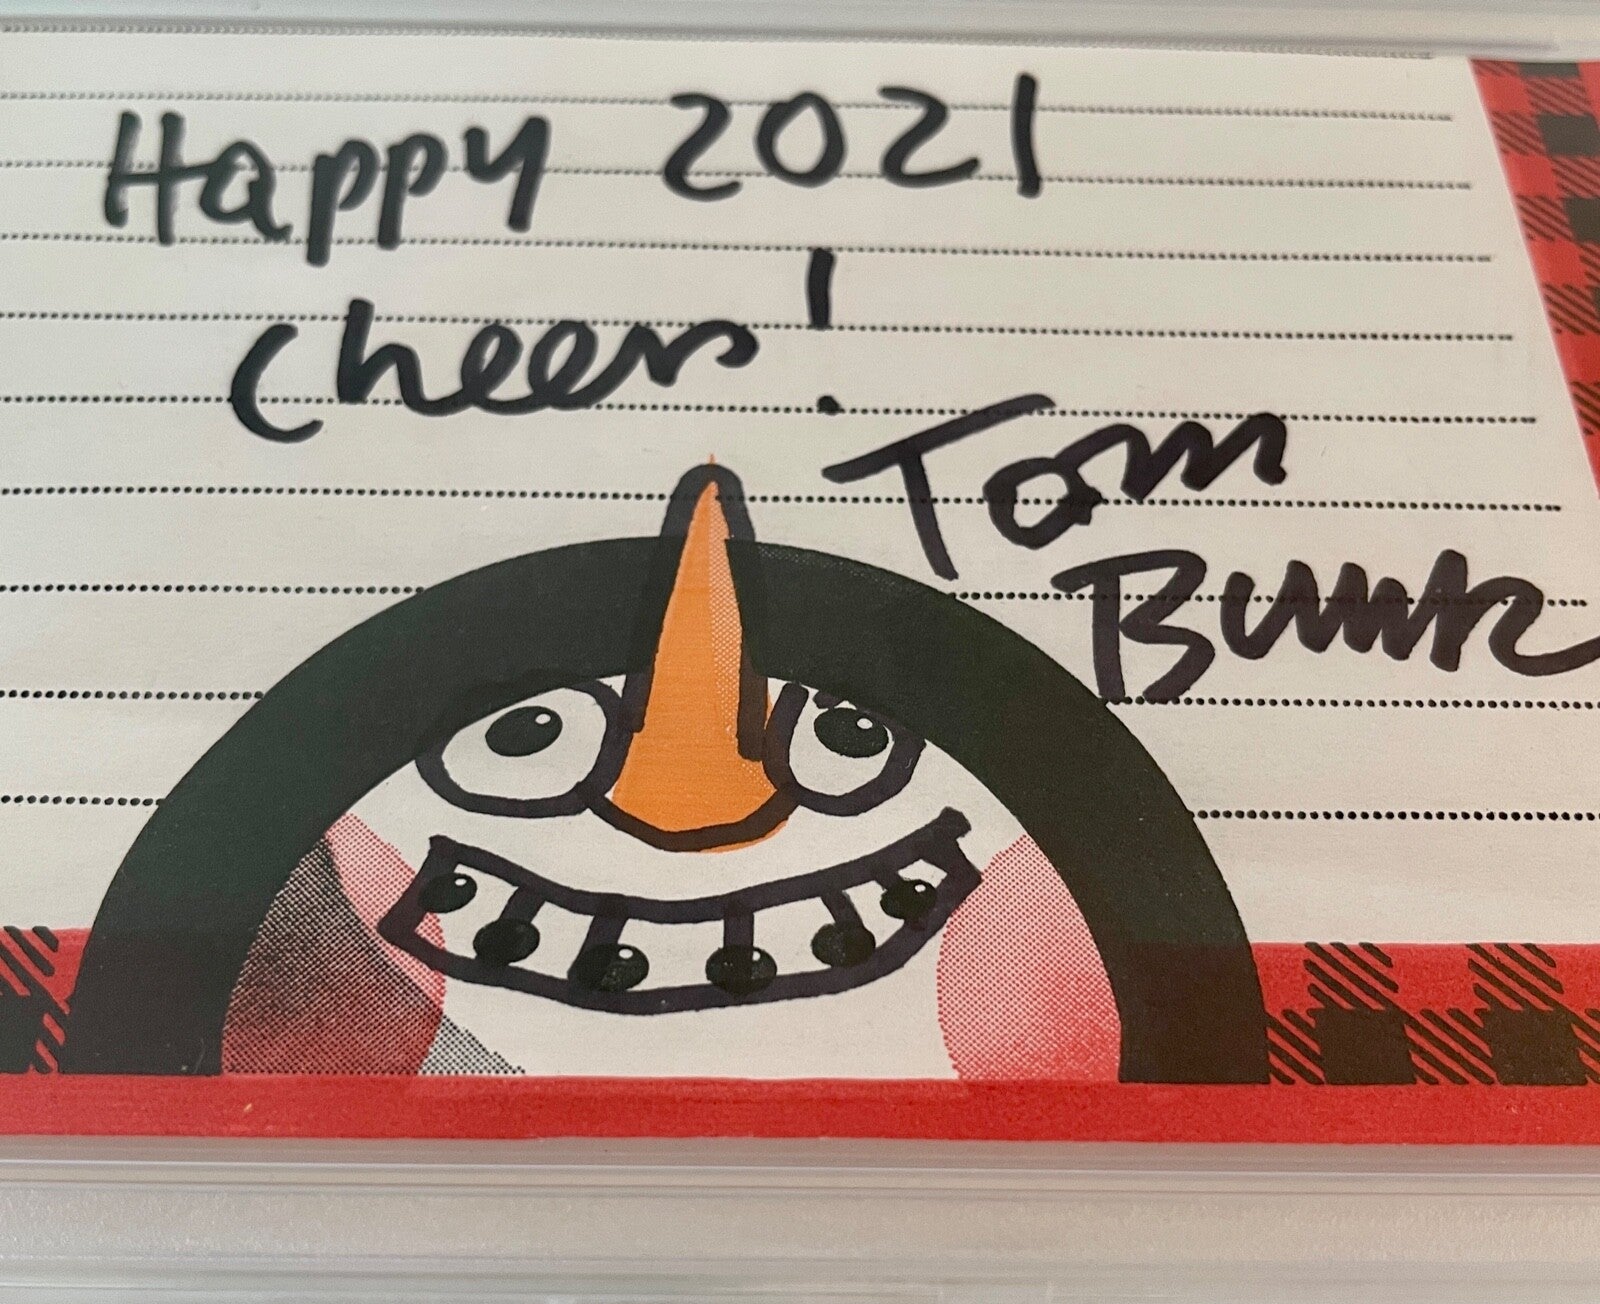 Happy 2021
Cheers!
Tom
Bunk